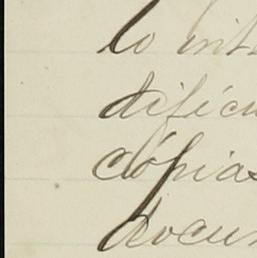 lo int
dificu
copias
docum